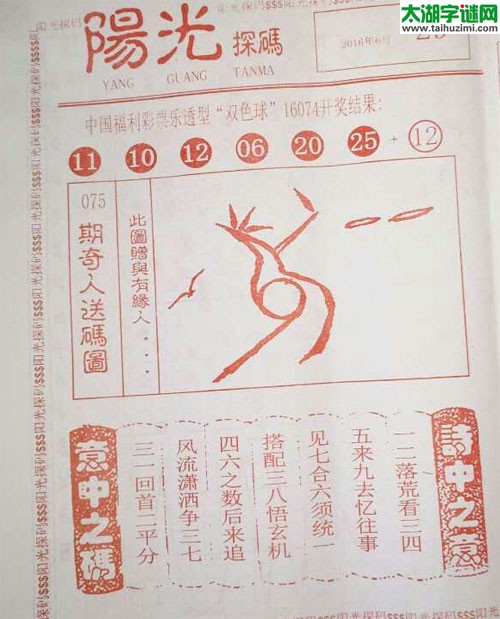 太湖字谜网
www.taihuzimi.com
陽光探碼
YANG GUANG TANMA
2016年6月
中国福利彩票乐透型“双色球”16074开奖结果:
11 10 12 06 20 25 + 12
075
期奇人送碼圖
此圖贈與有緣人...
詩中之意
一二落荒看三四
五来九去忆往事
见七合六须统一
搭配三八悟玄机
四六之数后来追
风流潇洒争三七
三一回首二平分
意中之碼
阳光探码$$$阳光探码$$$阳光探码$$$